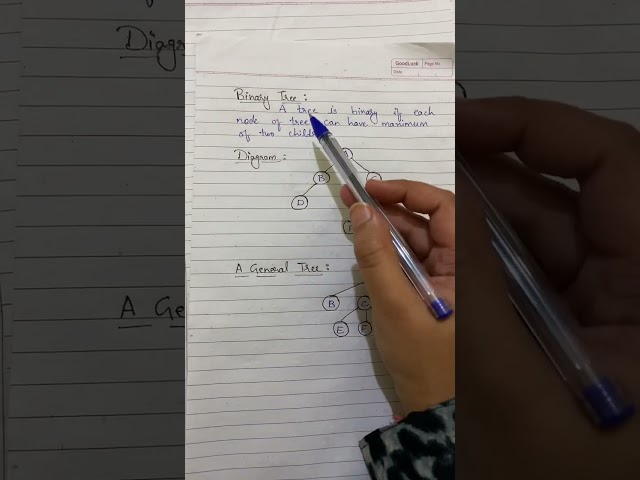 GoodLuck Page No.
Date
Binary Tree :
A tree is binary if each
node of tree can have maximum
of two child
Diagram :
B
D
A General Tree :
B C
E F